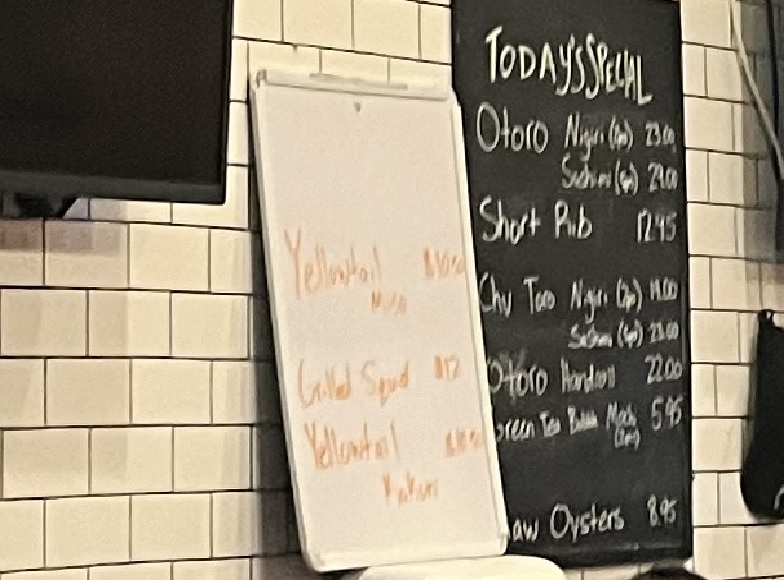 Yellowtail
Miso
Grilled Squid $12
Yellowtail
TODAY'S SPECIAL
Otoro Nigiri (2p) 23.00
Sashimi (5p) 29.00
Short Rib 12.95
Chu Toro Nigiri (2p) 19.00
Sashimi 23.00
Otoro Handroll 22.00
Green Tea Mochi 5.95
Raw Oysters 8.95